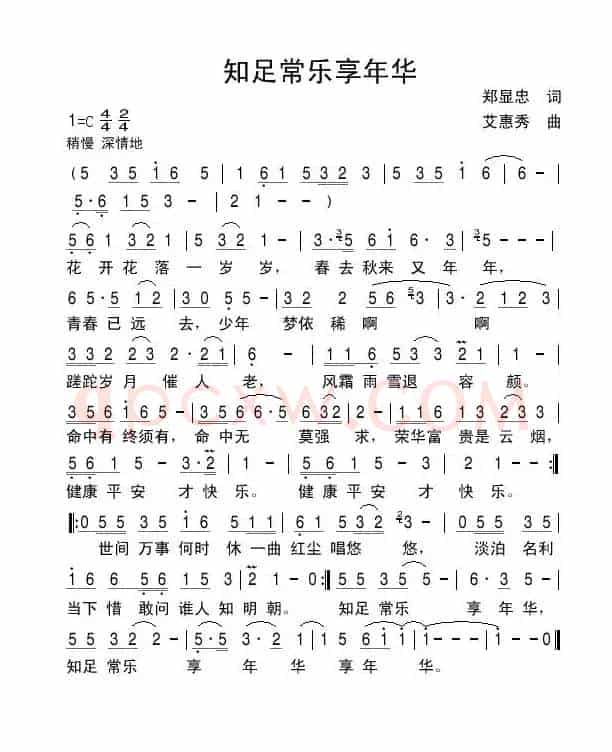 知足常乐享年华
郑显忠 词
1=C 4/4 2/4
艾惠秀 曲
稍慢 深情地
(5 3 5 1 6 5 | 1 6 1 5 3 2 3 | 5 3 5 1 6 | 6 - |
5·6 1 5 3 - | 2 1 - - )
5 6 1 3 2 1 | 5· 5 2 | 1 - | 3·3 5 6 1 6· 3 | 2 - - - |
花 开 花 落 一 岁 岁, 春 去 秋来 又 年 年,
6 5· 5· 1 2 | 3 0 5 5· | 3 2· 2 5 6 6 3 | 1 2 3 - |
青春 已 远 去, 少年 梦依 稀 啊 啊
3 3 2 3 2 2 3 2·2 1 | 6 - | 3 5 6 5 5 3 | 5 2 1 - |
蹉跎岁 月 催 人 老, 风霜 雨 雪退 容 颜。
qpcxw.com
命中有 终须有, 命 中无 莫强 求, 荣华富 贵是 云 烟,
5 6 1 5 - | 3·2 1 - | 5 6 1 5 - | 3· 2 | 1 - :‖
健康 平 安 才 快 乐。 健 康 平 安 才 快 乐。
‖:0 5 5 3 5 1 6 | 5 5 5 6 1 | 5 3 2 3 | 2 - | 0 5 5 3 5 |
世间 万事 何时 休 一曲 红尘 唱悠 悠, 淡泊 名利
1 6 6 5 6 | 1 2 3 5 5 3 | 2 1 - 0 :‖ 5 5 3 5 | 5 3 2 1 - |
当下 惜 敢问 谁人 知 明 朝。 知足 常乐 享 年 华,
5 5 3 2 2 - | 5· 5 3 2 | 1 - | 1 5 6 1 1 | 1 - - - | 1 - - 0 ‖
知足 常乐 享 年 华 享 年 华。